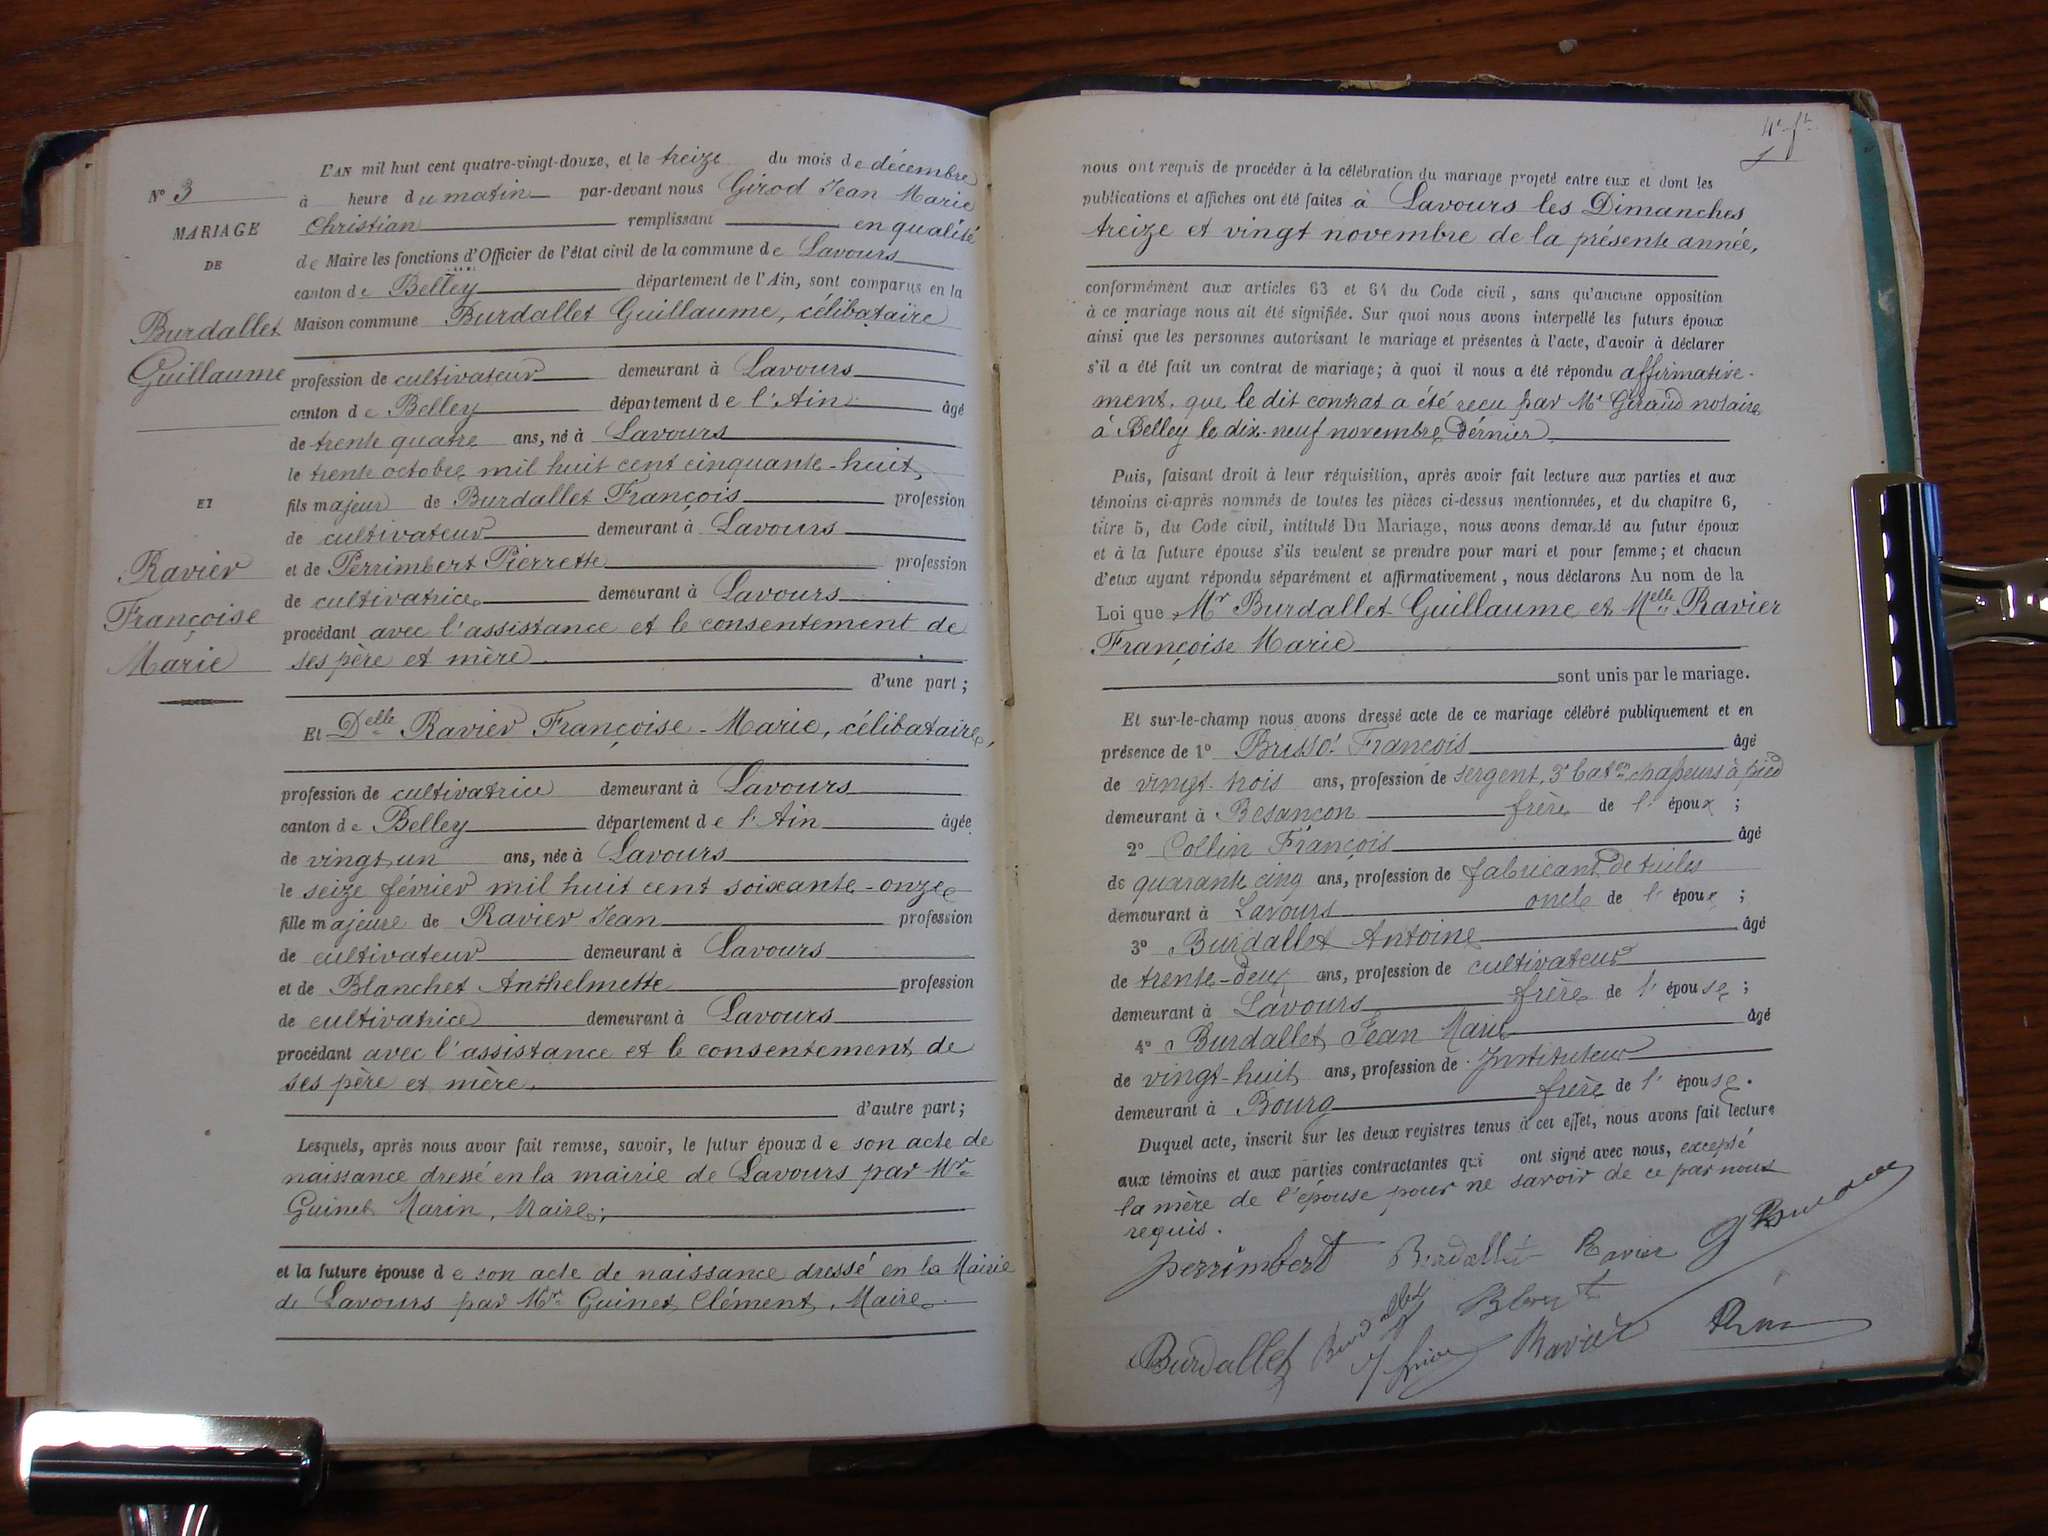 N° 3
MARIAGE
DE
Burdallet
Guillaume
ET
Ravier
Françoise
Marie
L'AN mil huit cent quatre-vingt-douze, et le treize du mois de décembre
à heure du matin par-devant nous Girod Jean Marie
Christian remplissant en qualité
de Maire les fonctions d'Officier de l'état civil de la commune de Lavours
canton de Belley département de l'Ain, sont comparus en la
Maison commune Burdallet Guillaume, célibataire
profession de cultivateur demeurant à Lavours
canton de Belley département de l'Ain âgé
de trente quatre ans, né à Lavours
le trente octobre mil huit cent cinquante-huit,
fils majeur de Burdallet François profession
de cultivateur demeurant à Lavours
et de Perrimbert Pierrette profession
de cultivatrice demeurant à Lavours
procédant avec l'assistance et le consentement de
ses père et mère
d'une part;
Et Delle Ravier Françoise-Marie, célibataire,
profession de cultivatrice demeurant à Lavours
canton de Belley département de l'Ain âgée
de vingt un ans, née à Lavours
le seize février mil huit cent soixante-onze
fille majeure de Ravier Jean profession
de cultivateur demeurant à Lavours
et de Blanchet Anthelmette profession
de cultivatrice demeurant à Lavours
procédant avec l'assistance et le consentement de
ses père et mère.
d'autre part;
Lesquels, après nous avoir fait remise, savoir, le futur époux de son acte de
naissance dressé en la mairie de Lavours par Mr
Guinet Marin, Maire;
et la future épouse de son acte de naissance dressé en la Mairie
de Lavours par Mr Guinet Clément, Maire.
nous ont requis de procéder à la célébration du mariage projeté entre eux et dont les
publications et affiches ont été faites à Lavours les Dimanches
treize et vingt novembre de la présente année,
conformément aux articles 63 et 64 du Code civil, sans qu'aucune opposition
à ce mariage nous ait été signifiée. Sur quoi nous avons interpellé les futurs époux
ainsi que les personnes autorisant le mariage et présentes à l'acte, d'avoir à déclarer
s'il a été fait un contrat de mariage; à quoi il nous a été répondu affirmative-
ment, que le dit contrat a été reçu par Me Giraud notaire
à Belley le dix-neuf novembre dernier
Puis, faisant droit à leur réquisition, après avoir fait lecture aux parties et aux
témoins ci-après nommés de toutes les pièces ci-dessus mentionnées, et du chapitre 6,
titre 5, du Code civil, intitulé Du Mariage, nous avons demandé au futur époux
et à la future épouse s'ils veulent se prendre pour mari et pour femme; et chacun
d'eux ayant répondu séparément et affirmativement, nous déclarons Au nom de la
Loi que Mr Burdallet Guillaume et Melle Ravier
Françoise Marie
sont unis par le mariage.
Et sur-le-champ nous avons dressé acte de ce mariage célébré publiquement et en
présence de 1° François âgé
de vingt-trois ans, profession de sergent, 3e baton chasseurs à pied
demeurant à Besançon frère de l' époux;
2° Collin François âgé
de quarante cinq ans, profession de fabricant de tuiles
demeurant à Lavours oncle de l' époux;
3° Burdallet Antoine âgé
de trente-deux ans, profession de cultivateur
demeurant à Lavours frère de l' épouse;
4° Burdallet Jean Marie âgé
de vingt-huit ans, profession de Instituteur
demeurant à Bourg frère de l' épouse.
Duquel acte, inscrit sur les deux registres tenus à cet effet, nous avons fait lecture
aux témoins et aux parties contractantes qui ont signé avec nous, excepté
la mère de l'épouse pour ne savoir de ce par nous
requis.
perrimbert Burdallet Ravier
Burdallet Ravier